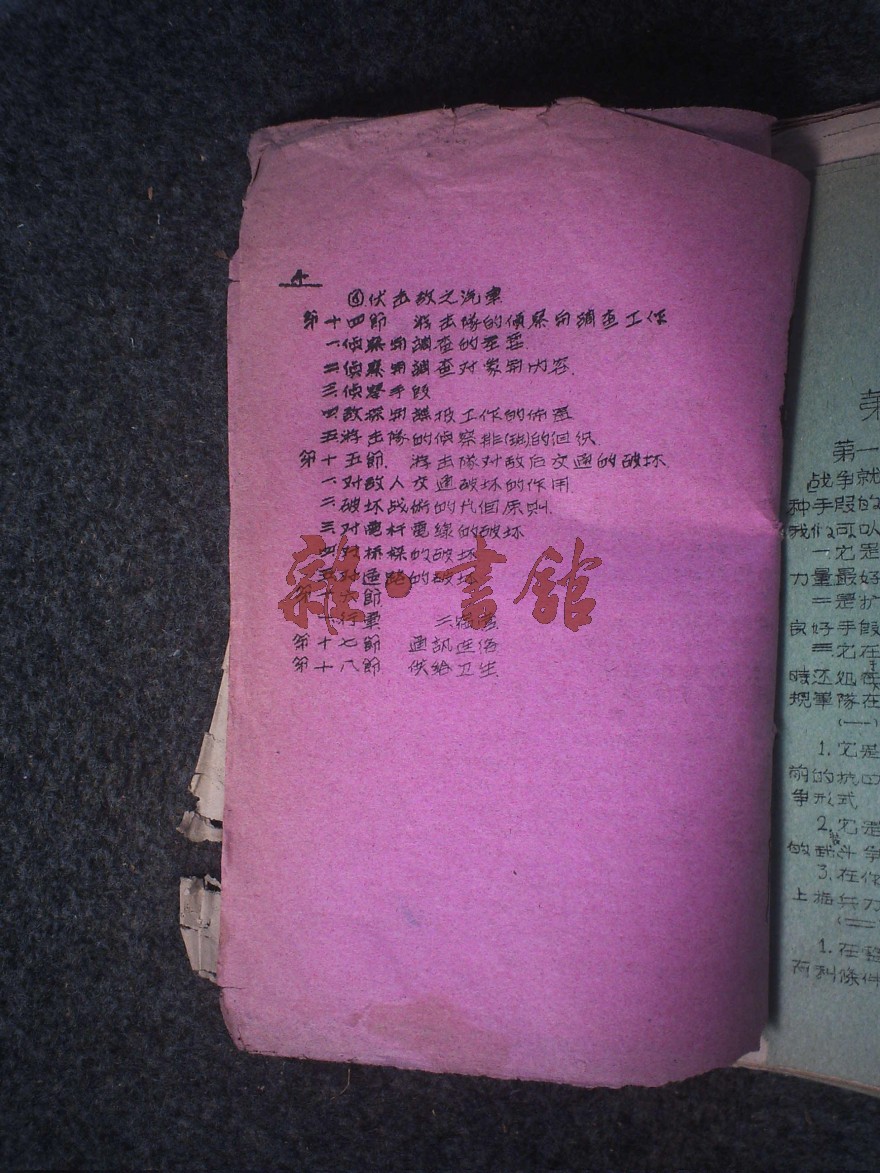 4
⑥伏击敌之汽車
第十四節 游击隊的偵察与調查工作
一偵察与調查的重要
二偵察与調查对象与内容.
三偵察手段
四敌探与諜报工作的佈置
五游击隊的偵察排(班)的组织.
第十五節. 游击隊对敌后交通的破坏.
一对敌人交通破坏的作用
二破坏战術的几個原則.
三对電杆電線的破坏
四对桥樑的破坏
五对道路的破坏
第十六節
一行軍 二宿营
第十七節 通訊连络
第十八節 供給卫生
雜·書館
第
第一
战争就
种手段的
我们可以
一它是
力量最好
二是扩
良好手段
三它在
時还处在
規軍隊在
(一)
1. 它是
前的抗日
争形式
2. 它是
的武斗争
3. 在作
上指兵力
(二)
1. 在
有利條件